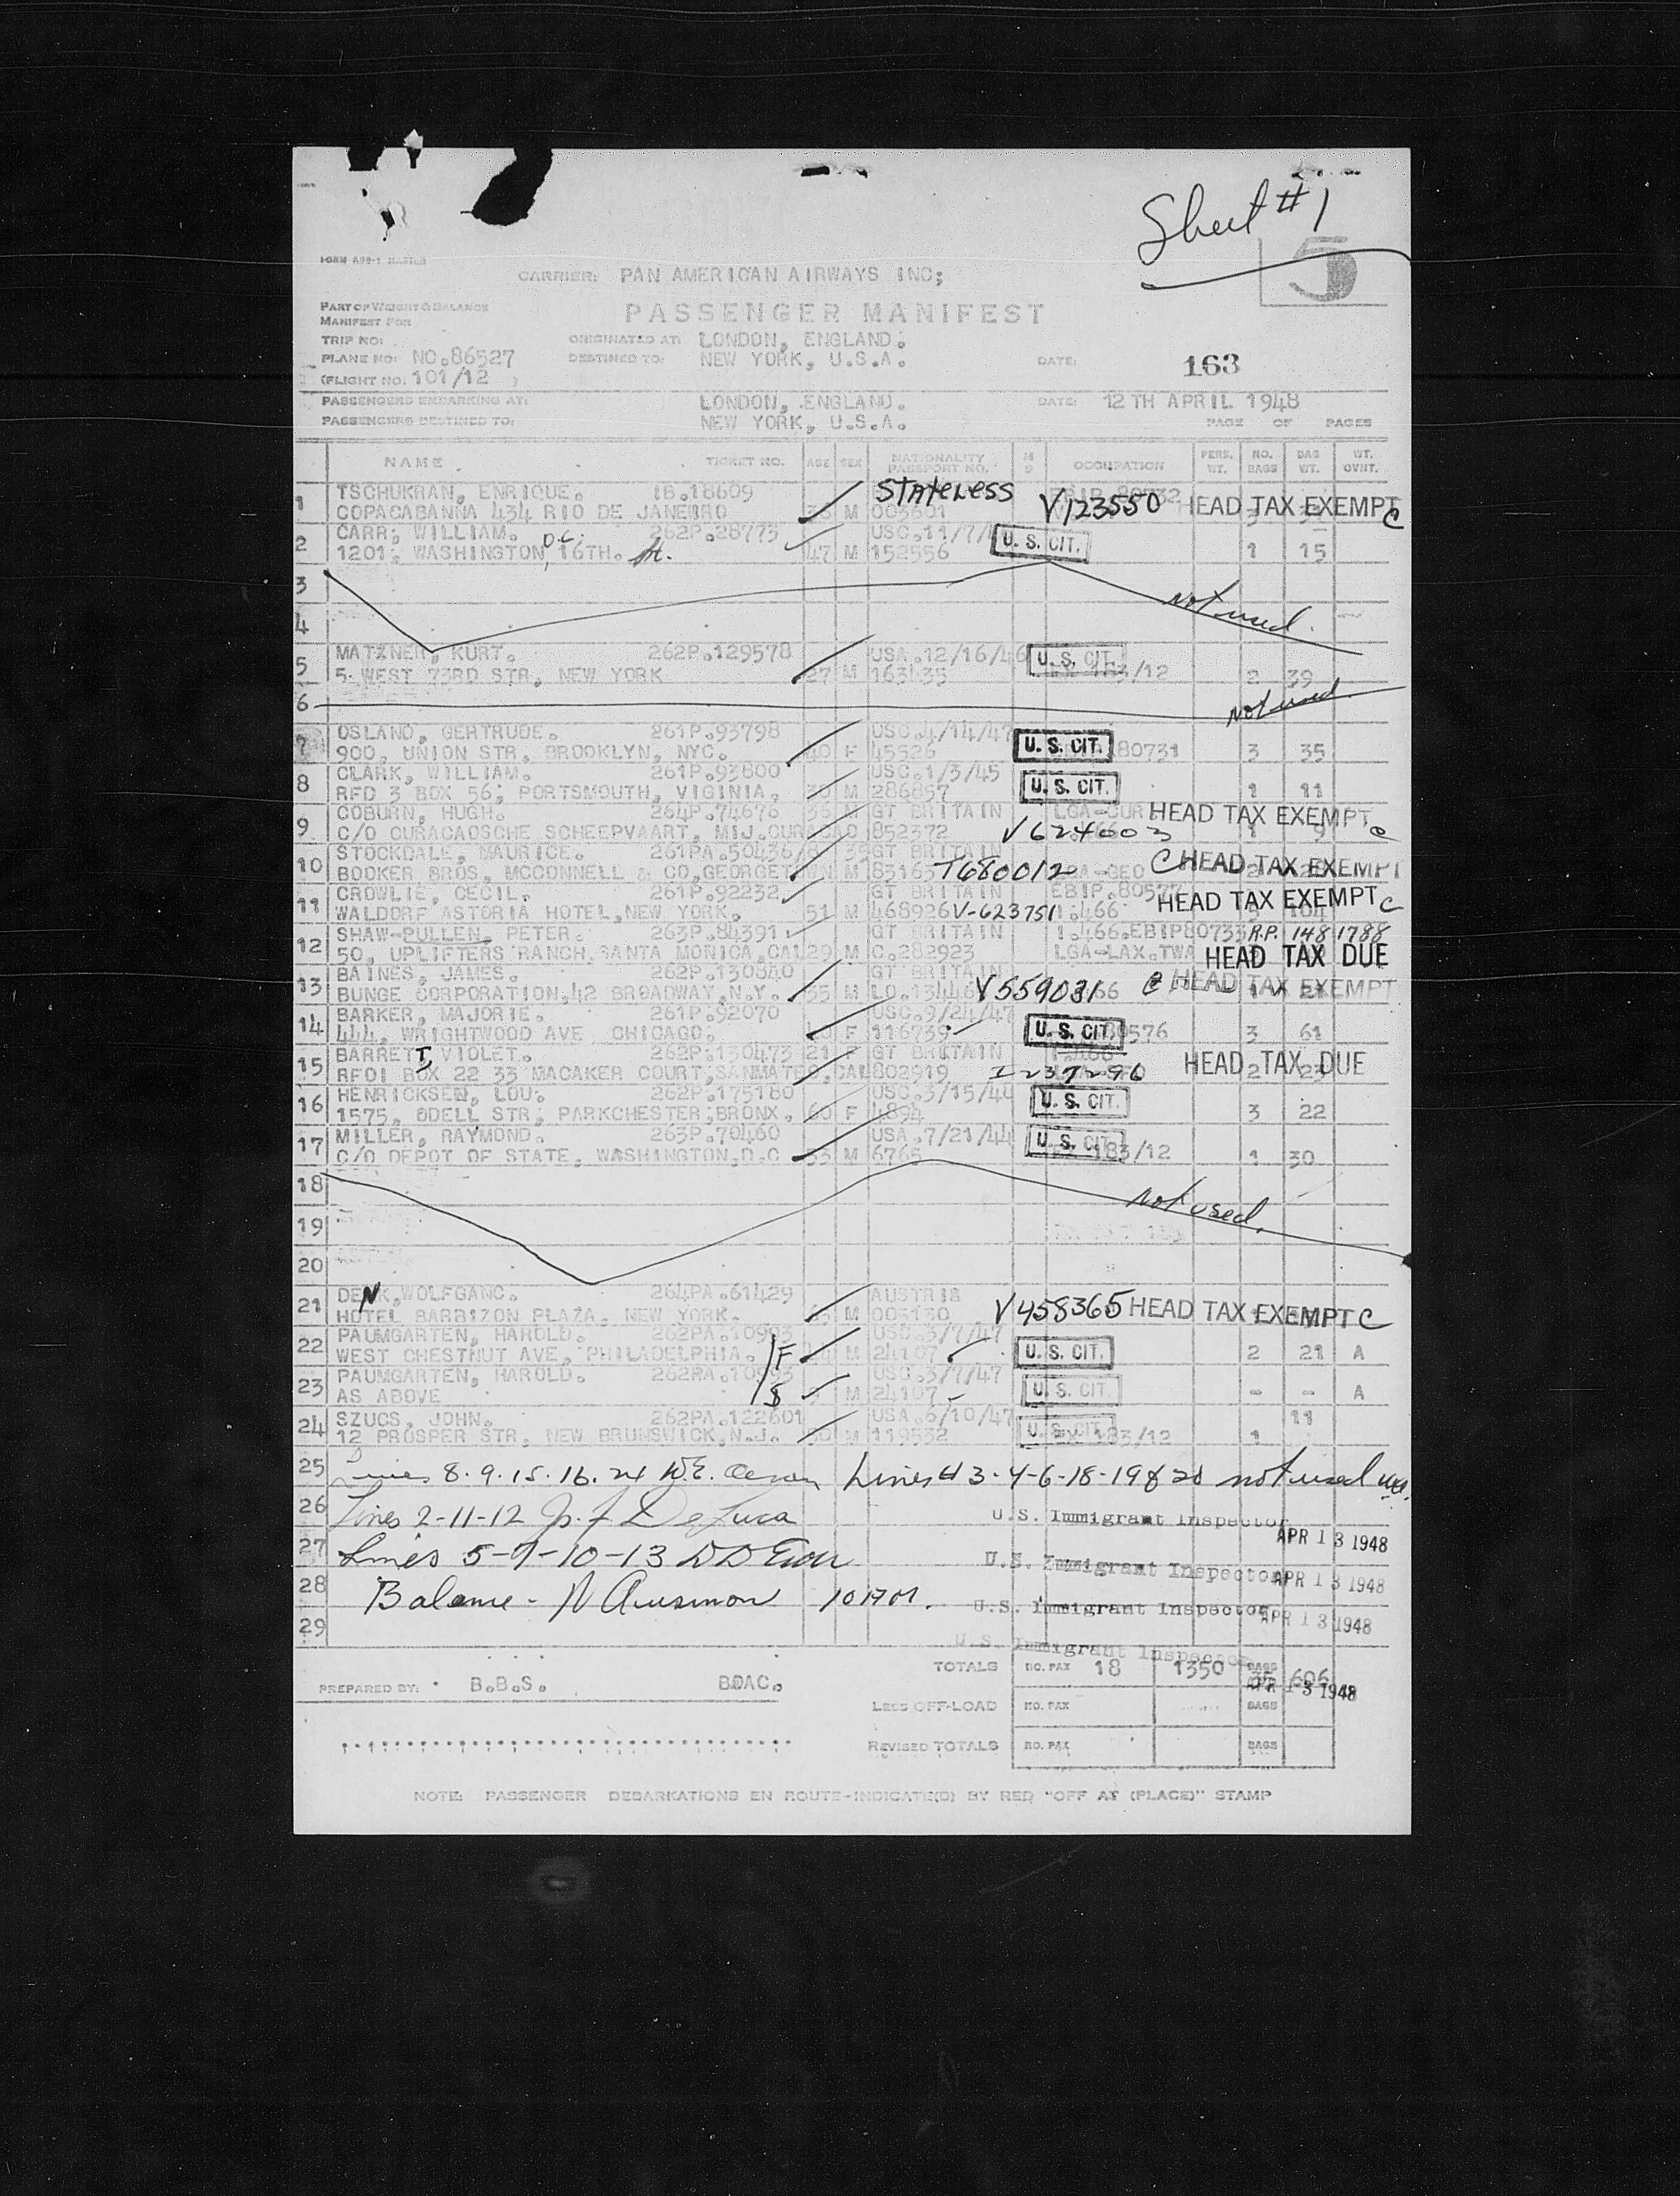 Sheet #1
5
FORM A28-1 MASTER
CARRIER: PAN AMERICAN AIRWAYS INC;
PART OF WEIGHT & BALANCE
MANIFEST FOR
PASSENGER MANIFEST
TRIP NO: ORIGINATED AT: LONDON, ENGLAND.
PLANE NO: NC.86527 DESTINED TO: NEW YORK, U.S.A. DATE: 163
(FLIGHT NO. 101/12 )
PASSENGERS EMBARKING AT: LONDON, ENGLAND. DATE: 12TH APRIL 1948
PASSENGERS DESTINED TO: NEW YORK, U.S.A. PAGE OF PAGES
NAME TICKET NO. AGE SEX NATIONALITY PASSPORT NO. M S OCCUPATION PERS. WT. NO. BAGS BAG WT. WT. OVNT.
1 TSCHUKRAN, ENRIQUE. IB.18609 STATELESS
COPACABANNA 434 RIO DE JANEIRO M 003601 V123550 HEAD TAX EXEMPT C
2 CARR; WILLIAM. 262P.28773 USC.11/7/ U.S. CIT.
1201; WASHINGTON, D.C. 16TH. St. 47 M 152556 1 15
3
4 not used.
5 MATZNER, KURT. 262P.129578 USA.12/16/46 U.S. CIT.
5. WEST 73RD STR, NEW YORK 27 M 163435 183/12 2 39
6 not used.
7 OSLAND, GERTRUDE. 261P.93798 USC.4/14/47 U.S. CIT.
900, UNION STR, BROOKLYN, NYC. 40 F 45526 80731 3 35
8 CLARK, WILLIAM. 261P.93800 USC.1/3/45 U.S. CIT.
RFD 3 BOX 56; PORTSMOUTH, VIGINIA. 30 M 286857 1 11
9 COBURN, HUGH. 264P.74676 M GT BRITAIN LGA-CUR HEAD TAX EXEMPT C
C/O CURACAOSCHE SCHEEPVAART, MIJ.CURACAO 852372 V624603 1 9
10 STOCKDALE, MAURICE. 261PA.50436 35 GT BRITAIN
BOOKER BROS, MCCONNELL & CO, GEORGETOWN M 83165 T680012 LGA-GEO C HEAD TAX EXEMPT
11 CROWLIE, CECIL. 261P.92232 GT BRITAIN EBIP.80577
WALDORF ASTORIA HOTEL, NEW YORK. 51 M 468926 V-623751 1.466 HEAD TAX EXEMPT C
12 SHAW-PULLEN, PETER. 263P.84391 GT BRITAIN 1.466.EBIP80733 R.P. 1481788
50, UPLIFTERS RANCH, SANTA MONICA, CAL 29 M C.282923 LGA-LAX.TWA HEAD TAX DUE
13 BAINES, JAMES. 262P.130840 GT BRITAIN
BUNGE CORPORATION, 42 BROADWAY, N.Y. 55 M LO.13446 V559031 66 C HEAD TAX EXEMPT
14 BARKER, MAJORIE. 261P.92070 USC.9/24/47
444, WRIGHTWOOD AVE CHICAGO. F 116739 U.S. CIT. 80576 3 61
15 BARRETT, VIOLET. 262P.130473 21 F GT BRITAIN 1.466
RFD1 BOX 22 33 MACAKER COURT, SANMATEO, CAL 802919 I-237296 HEAD TAX DUE 2 23
16 HENRICKSEN, LOU. 262P.175180 USC.3/15/4 U.S. CIT.
1575, ODELL STR; PARKCHESTER; BRONX. 60 F 4894 3 22
17 MILLER, RAYMOND. 263P.70460 USA.7/21/44 U.S. CIT.
C/O DEPOT OF STATE, WASHINGTON, D.C 33 M 6765 183/12 1 30
18 not used.
19
20
21 DENK, WOLFGANG. 264PA.61429 AUSTRIA
HOTEL BARBIZON PLAZA, NEW YORK. M 003130 V458365 HEAD TAX EXEMPT C
22 PAUMGARTEN, HAROLD. 262PA.10993 USC.3/7/47
WEST CHESTNUT AVE, PHILADELPHIA. F M 24107 U.S. CIT. 2 21 A
23 PAUMGARTEN, HAROLD. 262PA.10993 USC.3/7/47
AS ABOVE S M 24107 U.S. CIT. - - A
24 SZUCS, JOHN. 262PA.122601 USA.6/10/47 U.S. CIT. 11
12 PROSPER STR, NEW BRUNSWICK, N.J. 30 M 119532 183/12 1
25 Lines 8.9.15.16.24 W.E. Lines # 3-4-6-18-19 & 20 not used
26 Lines 2-11-12 J. F. DeLuca U.S. Immigrant Inspector
APR 13 1948
27 Lines 5-7-10-13 U.S. Immigrant Inspector APR 13 1948
28 Balance - U.S. Immigrant Inspector APR 13 1948
29 U.S. Immigrant Inspector
TOTALS NO. PAX 18 1350 BAGS 35 606
APR 13 1948
PREPARED BY: B.B.S. BOAC.
LESS OFF-LOAD NO. PAX BAGS
REVISED TOTALS NO. PAX BAGS
NOTE: PASSENGER DEBARKATIONS EN ROUTE-INDICATE(D) BY RED "OFF AT (PLACE)" STAMP